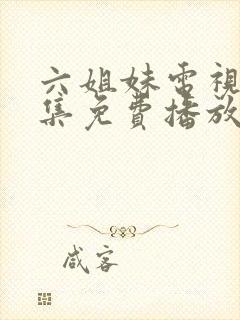 六姐妹電視
集免費播放
咸客